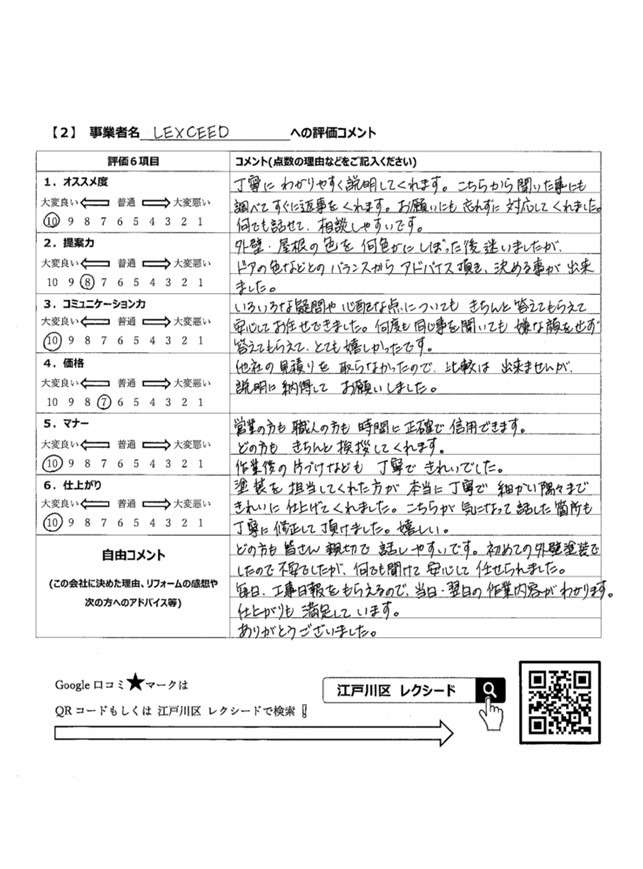 【2】 事業者名 LEXCEED への評価コメント
評価6項目
コメント(点数の理由などをご記入ください)
1．オススメ度
大変良い 普通 大変悪い
10 9 8 7 6 5 4 3 2 1
丁寧に わかりやすく説明してくれます。こちらから聞いた事にも
調べてすぐに返事をくれます。お願いにも忘れずに対応してくれました。
何でも話せて、相談しやすいです。
2．提案力
大変良い 普通 大変悪い
10 9 8 7 6 5 4 3 2 1
外壁・屋根の色を 何色かにしぼった後迷いましたが、
ドアの色などとのバランスから アドバイス頂き、決める事が出来
ました。
3．コミュニケーション力
大変良い 普通 大変悪い
10 9 8 7 6 5 4 3 2 1
いろいろな疑問や 心配な点についても きちんと答えてもらえて
安心してお任せできました。何度も同じ事を聞いても 嫌な顔を出さず
答えてもらえて、とても嬉しかったです。
4．価格
大変良い 普通 大変悪い
10 9 8 7 6 5 4 3 2 1
他社の見積りを 取らなかったので、比較は 出来ませんが、
説明に納得して お願いしました。
5．マナー
大変良い 普通 大変悪い
10 9 8 7 6 5 4 3 2 1
営業の方も 職人の方も 時間に正確で 信用できます。
どの方も きちんと挨拶してくれます。
作業後の片づけなども 丁寧で きれいでした。
6．仕上がり
大変良い 普通 大変悪い
10 9 8 7 6 5 4 3 2 1
塗装を担当してくれた方が 本当に丁寧で 細かい隅々まで
きれいに仕上げてくれました。こちらが 気になって話した箇所も
丁寧に修正して頂けました。嬉しい。
自由コメント
(この会社に決めた理由、リフォームの感想や
次の方へのアドバイス等)
どの方も 皆さん 親切で 話しやすいです。初めての外壁塗装で
したので不安でしたが、何でも聞けて 安心して 任せられました。
毎日、工事日報をもらえるので、当日・翌日の作業内容がわかります。
仕上がりも 満足しています。
ありがとうございました。
Google 口コミ★マークは
QRコードもしくは 江戸川区 レクシードで検索！
江戸川区 レクシード